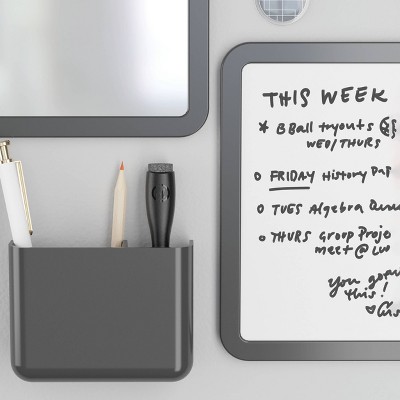 THIS WEEK
* BBall tryouts
WED/THURS
o FRIDAY History Pap
o TUES Algebra
o THURS Group Proje
meet@
You go
this!